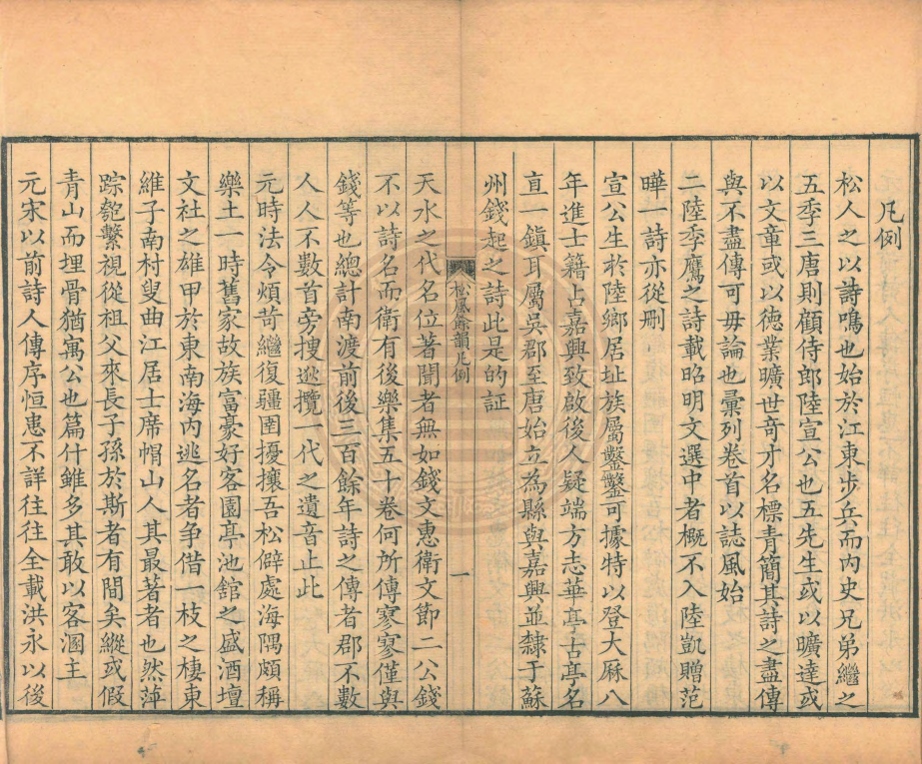 凡例
松人之以詩鳴也始於江東步兵而内史兄弟繼之
五季三唐則顧侍郎陸宣公也五先生或以曠達或
以文章或以德業曠世奇才名標青簡其詩之盡傳
與不盡傳可毋論也彙列卷首以誌風始
二陸季鷹之詩載昭明文選中者概不入陸凱贈范
曄一詩亦從刪
宣公生於陸鄉居址族屬鑿鑿可據特以登大厯八
年進士籍占嘉興致啟後人疑端方志華亭古亭名
亶一鎮耳屬吳郡至唐始立為縣與嘉興並隸于蘇
州錢起之詩此是的証
松風餘韻凡例
一
天水之代名位著聞者無如錢文惠衛文節二公錢
不以詩名而衛有後樂集五十卷何所傳寥寥僅與
錢等也總計南渡前後三百餘年詩之傳者郡不數
人人不數首旁搜遐攬一代之遺音止此
元時法令煩苛繼復疆圉擾攘吾松僻處海隅頗稱
樂土一時舊家故族富豪好客園亭池舘之盛酒壇
文社之雄甲於東南海内逃名者争借一枝之棲東
維子南村叟曲江居士席帽山人其最著者也然萍
踪匏繫視從祖父來長子孫於斯者有間矣縱或假
青山而埋骨猶寓公也篇什雖多其敢以客溷主
元宋以前詩人傳序恒患不詳往往全載洪永以後